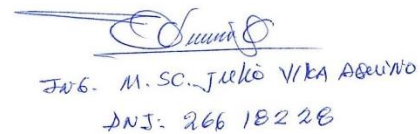 ING. M. SC. Julio VILCA AQUINO
DNI: 26618228